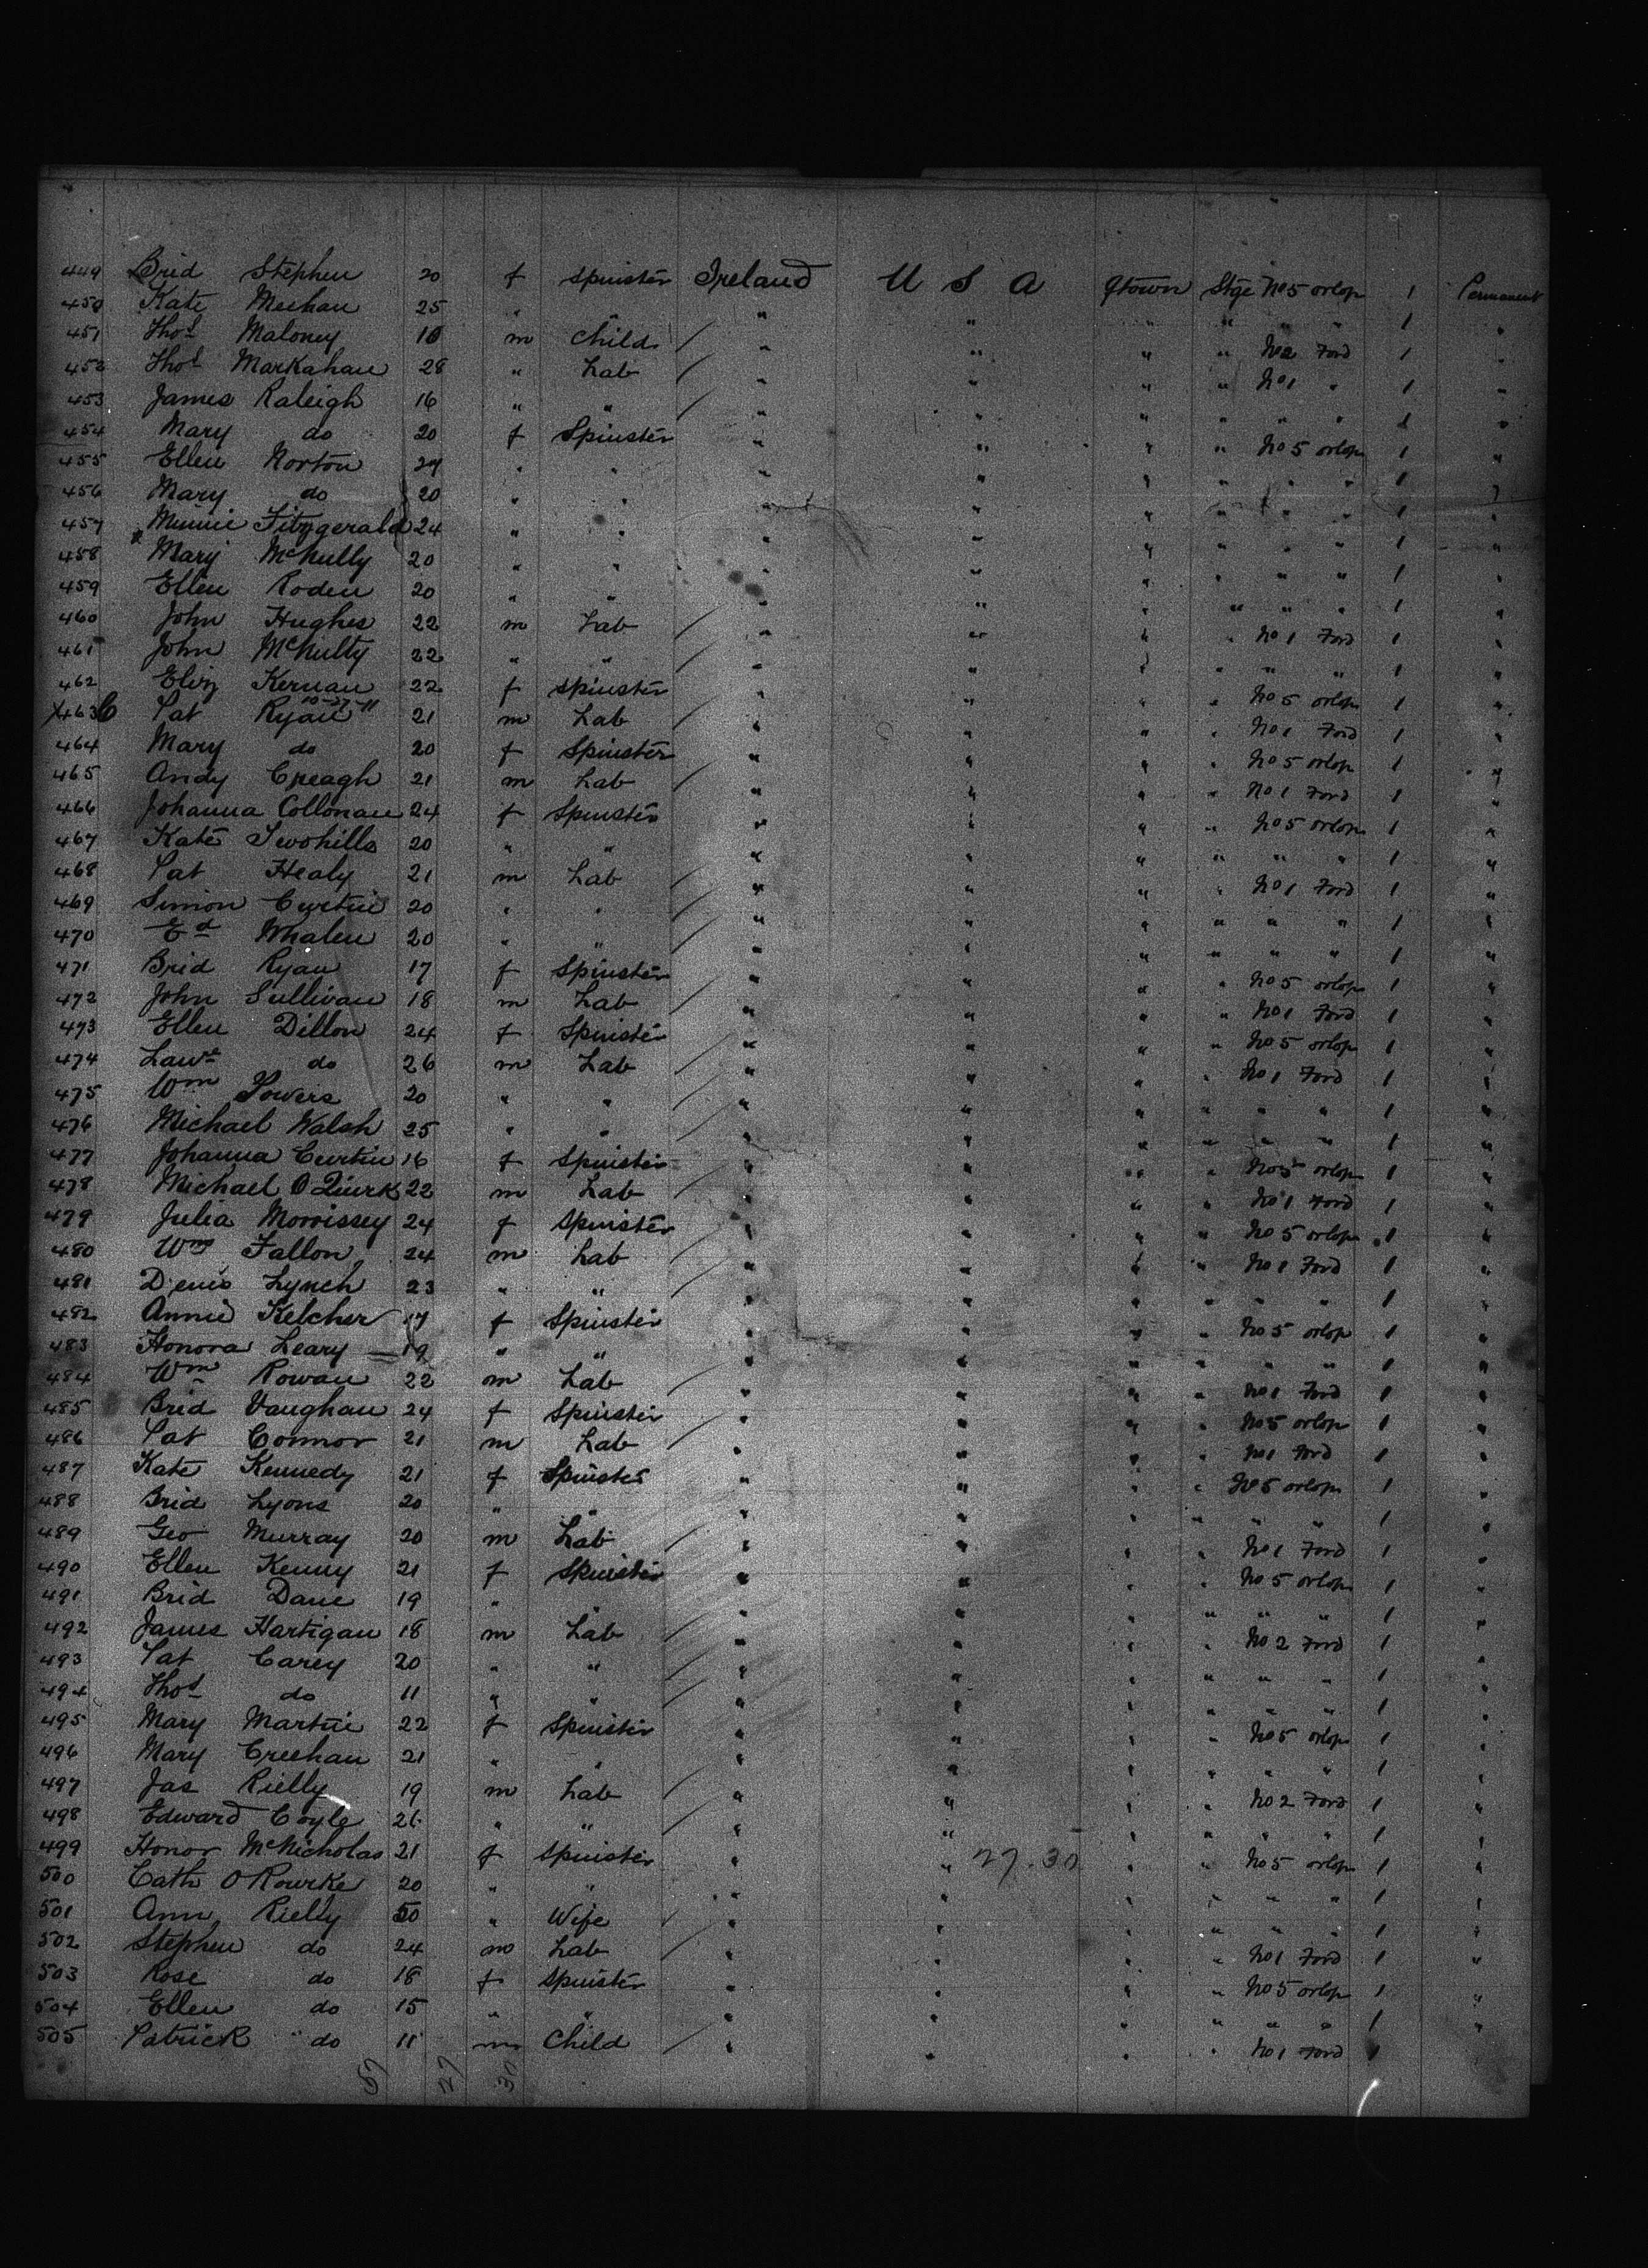 449 Brid Stephen 20 f Spinster Ireland U S A Qtown Stge No 5 orlop 1 Permanent
450 Kate Meehan 25 " " " " " " " " 1 "
451 Thos Maloney 10 m Child / " " " " No 2 Ford 1 "
452 Thos Markahan 28 " Lab / " " " " No 1 " 1 "
453 James Raleigh 16 " " / " " " " " " 1 "
454 Mary do 20 f Spinster " " " " No 5 orlop 1 "
455 Ellen Norton 24 " " " " " " " " 1 "
456 Mary do 20 " " " " " " " " 1 "
457 Minnie Fitzgerald 24 " " " " " " " " 1 "
458 Mary McNully 20 " " " " " " " " 1 "
459 Ellen Roden 20 " " " " " " " " 1 "
460 John Hughes 22 m Lab / " " " " No 1 Ford 1 "
461 John McNulty 22 " " / " " " " " " 1 "
462 Eliz Kernan 22 f Spinster " " " " No 5 orlop 1 "
X463 C Pat Ryan 10-27-11 21 m Lab / " " " " No 1 Ford 1 "
464 Mary do 20 f Spinster " " " " No 5 orlop 1 "
465 Andy Creagh 21 m Lab / " " " " No 1 Ford 1 "
466 Johanna Collonan 24 f Spinster " " " " No 5 orlop 1 "
467 Kate Twohills 20 " " " " " " " " 1 "
468 Pat Healy 21 m Lab / " " " " No 1 Ford 1 "
469 Simon Curtin 20 " " / " " " " " " 1 "
470 Ed Whalen 20 " " / " " " " " " 1 "
471 Brid Ryan 17 f Spinster " " " " No 5 orlop 1 "
472 John Sullivan 18 m Lab / " " " " No 1 Ford 1 "
473 Ellen Dillon 24 f Spinster " " " " No 5 orlop 1 "
474 Lawe do 26 m Lab / " " " " No 1 Ford 1 "
475 Wm Powers 20 " " / " " " " " " 1 "
476 Michael Walsh 25 " " / " " " " " " 1 "
477 Johanna Curtin 16 f Spinster " " " " No 5 orlop 1 "
478 Michael O Quirk 22 m Lab / " " " " No 1 Ford 1 "
479 Julia Morrissey 24 f Spinster " " " " No 5 orlop 1 "
480 Wm Fallon 24 m Lab / " " " " No 1 Ford 1 "
481 Denis Lynch 23 " " / " " " " " " 1 "
482 Annie Kelcher 17 f Spinster " " " " No 5 orlop 1 "
483 Honora Leary 19 " " " " " " " " 1 "
484 Wm Rowan 22 m Lab / " " " " No 1 Ford 1 "
485 Brid Vaughan 24 f Spinster " " " " No 5 orlop 1 "
486 Pat Connor 21 m Lab / " " " " No 1 Ford 1 "
487 Kate Kennedy 21 f Spinster " " " " No 5 orlop 1 "
488 Brid Lyons 20 " " " " " " " " 1 "
489 Geo Murray 20 m Lab / " " " " No 1 Ford 1 "
490 Ellen Kenny 21 f Spinster " " " " No 5 orlop 1 "
491 Brid Dane 19 " " " " " " " " 1 "
492 James Hartigan 18 m Lab / " " " " No 2 Ford 1 "
493 Pat Carey 20 " " / " " " " " " 1 "
494 Thos do 11 " " / " " " " " " 1 "
495 Mary Martin 22 f Spinster " " " " No 5 orlop 1 "
496 Mary Creehan 21 " " " " " " " " 1 "
497 Jas Rielly 19 m Lab / " " " " No 2 Ford 1 "
498 Edward Coyle 26 " " / " " " " " " 1 "
499 Honor McNicholas 21 f Spinster " " 27.30 " " No 5 orlop 1 "
500 Cath O Rourke 20 " " " " " " " " 1 "
501 Ann Rielly 50 " Wife / " " " " " " 1 "
502 Stephen do 24 m Lab / " " " " No 1 Ford 1 "
503 Rose do 18 f Spinster " " " " No 5 orlop 1 "
504 Ellen do 15 " " " " " " " " 1 "
505 Patrick do 11 m Child / " " " " No 1 Ford 1
57 27 30